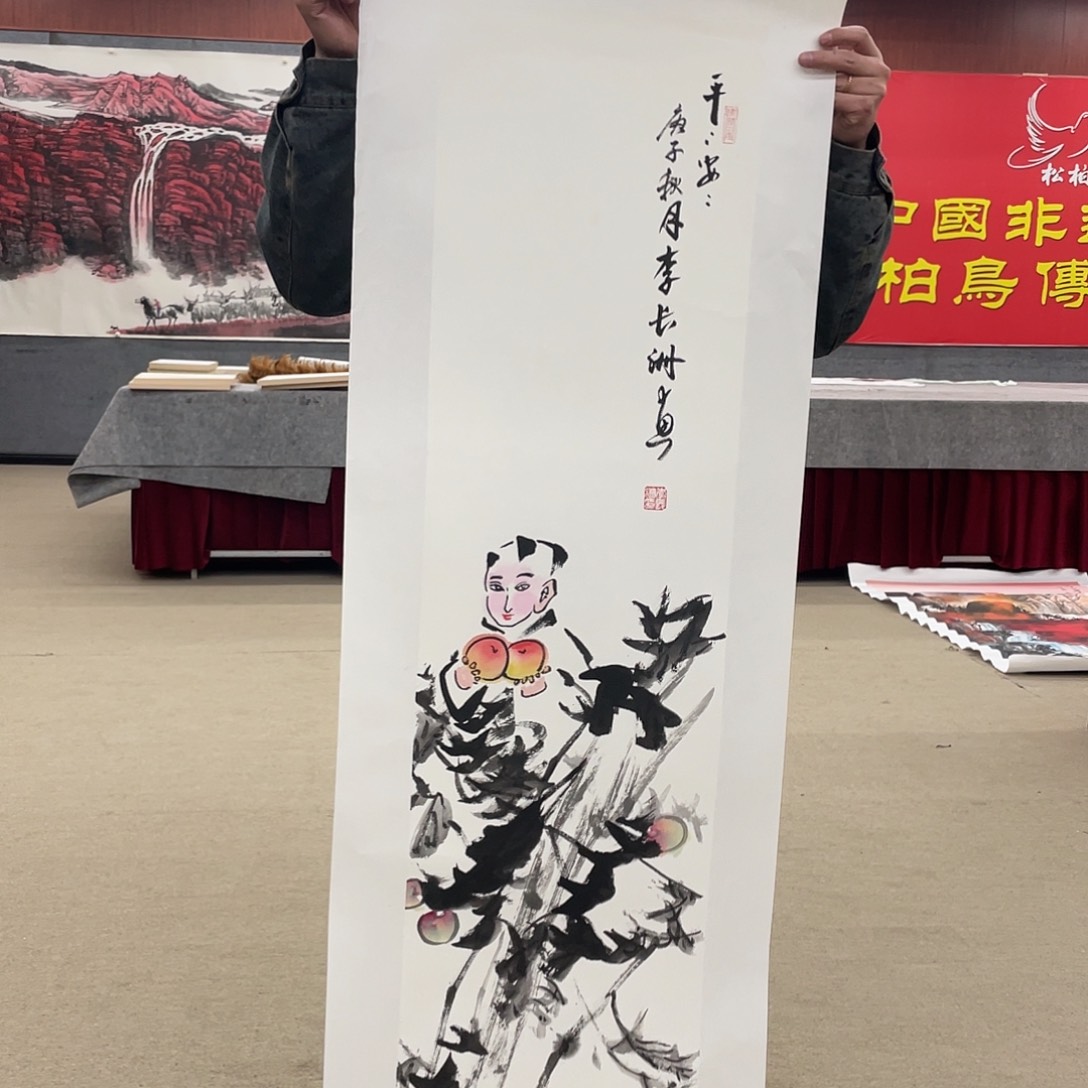 平〻安〻
庚子秋月李长洲画
松柏
中國非
柏鳥傳